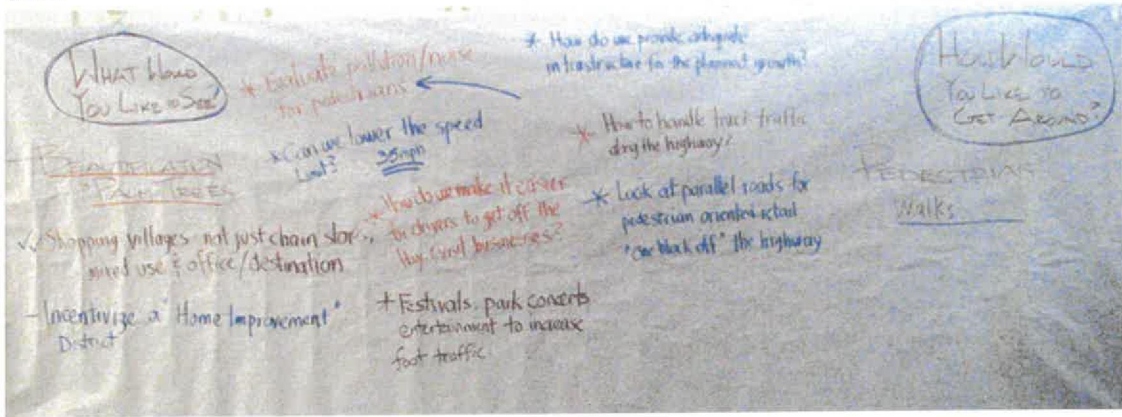 WHAT WOULD
YOU LIKE TO SEE?
- BEAUTIFICATION
"PALM TREES
✓✓ Shopping villages not just chain stores,
mixed use & office/destination
- Incentivize a "Home Improvement"
District
* Evaluate pollution/noise
for pedestrians
* Can we lower the speed
Limit? 35mph
* How do we make it easier
for drivers to get off the
Hwy. & find businesses?
+ Festivals, park concerts
entertainment to increase
foot traffic
* How do we provide adequate
infrastructure for the planned growth?
* How to handle truck traffic
along the highway?
* Look at parallel roads for
pedestrian oriented retail
"one block off" the highway
HOW WOULD
YOU LIKE TO
GET AROUND?
PEDESTRIAN
Walks